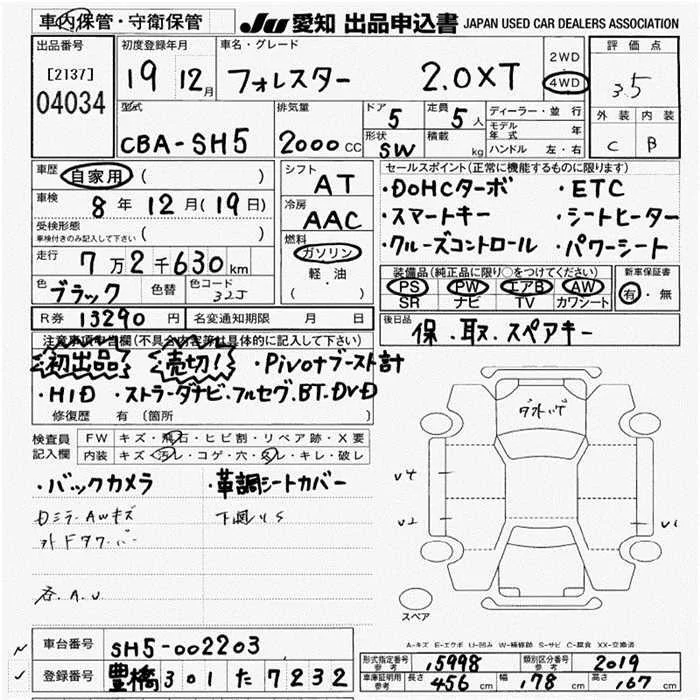 車内保管・守衛保管
JU 愛知 出品申込書 JAPAN USED CAR DEALERS ASSOCIATION
出品番号
[2137]
04034
初度登録年月
19 12月
車名・グレード
フォレスター 2.0XT
2WD
4WD
評価点
3.5
外装 内装
C B
型式
CBA-SH5
排気量
2000 CC
ドア
5
定員
5人
形状
SW
積載
kg
ディーラー・並行
モデル年式 年
ハンドル 左・右
車歴
自家用 ( )
車検
8年12月(19日)
受検形態
車検付きのみ記入して下さい ( )
走行
7万2千630km
色
ブラック
色替
色コード
32J
シフト
AT
冷房
AAC
燃料
ガソリン
軽・油
( )
セールスポイント(正常に機能するものに限ります)
・DOHCターボ ・ETC
・スマートキー ・シートヒーター
・クルーズコントロール ・パワーシート
装備品(純正品に限り○をつけてください)
PS PW エアB AW
SR ナビ TV カワシート
新車保証書
有・無
R券 13290円
名変通知期限 月 日
後日品
保.取.スペアキー
注意事項申告欄(不具合内容等は具体的に記入して下さい)
初出品 売切! ・Pivotブースト計
・HID ・ストラーダナビ.フルセグ.BT.DVD
修復歴 有 (箇所 )
検査員記入欄
FW キズ・飛石・ヒビ割・リペア跡・X要
内装 キズ・汚レ・コゲ・穴・スレ・キレ・破レ
・バックカメラ ・革調シートカバー
Dミラ.AWキズ
A.U
スペア
A-キズ E-エクボ U-凹み W-補修跡 S-サビ C-腐食 XX-交換済
車台番号 SH5-002203
登録番号 豊橋301た7232
形式指定番号 参考 15998
類別区分番号 参考 2019
車庫証明用 参考 長さ 456cm 幅 178cm 高さ 167cm